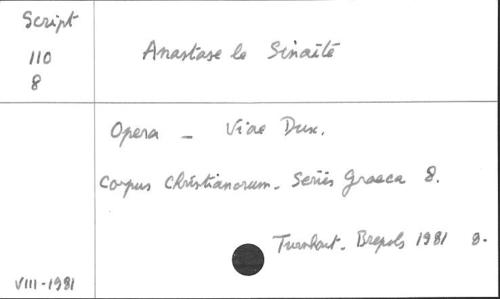 Script
110
8
Anastase le Sinaïte
Opera – Viae Dux.
Corpus Christianorum. Series Graeca 8.
Turnhout. Brepols 1981 8.
VIII-1981